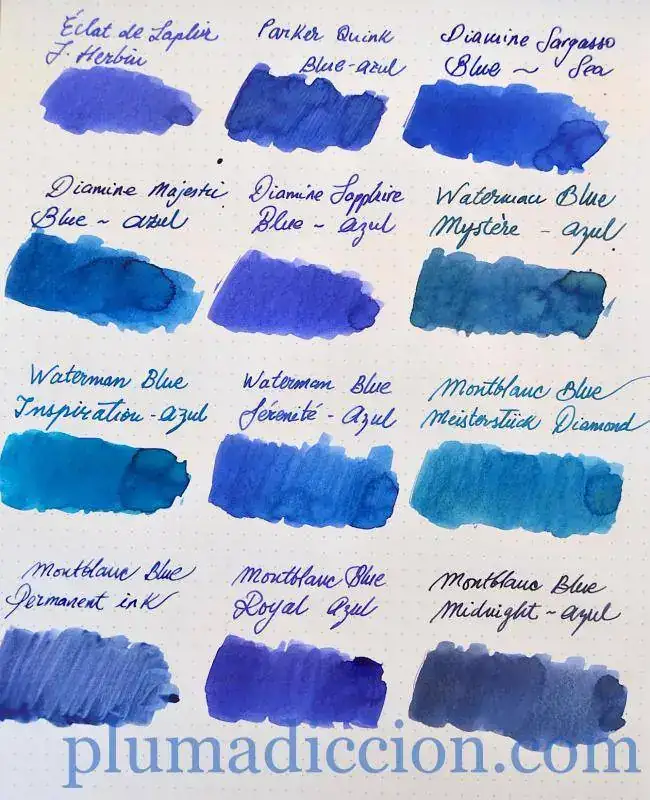 Éclat de Saphir
J. Herbin
Parker Quink
Blue-azul
Diamine Sargasso
Blue ~ Sea
Diamine Majestic
Blue ~ azul
Diamine Sapphire
Blue ~ azul
Waterman Blue
Mystère - azul
Waterman Blue
Inspiration - azul
Waterman Blue
Sérénité - Azul
Montblanc Blue
Meisterstück Diamond
Montblanc Blue
Permanent ink
Montblanc Blue
Royal azul
Montblanc Blue
Midnight - azul
plumadiccion.com